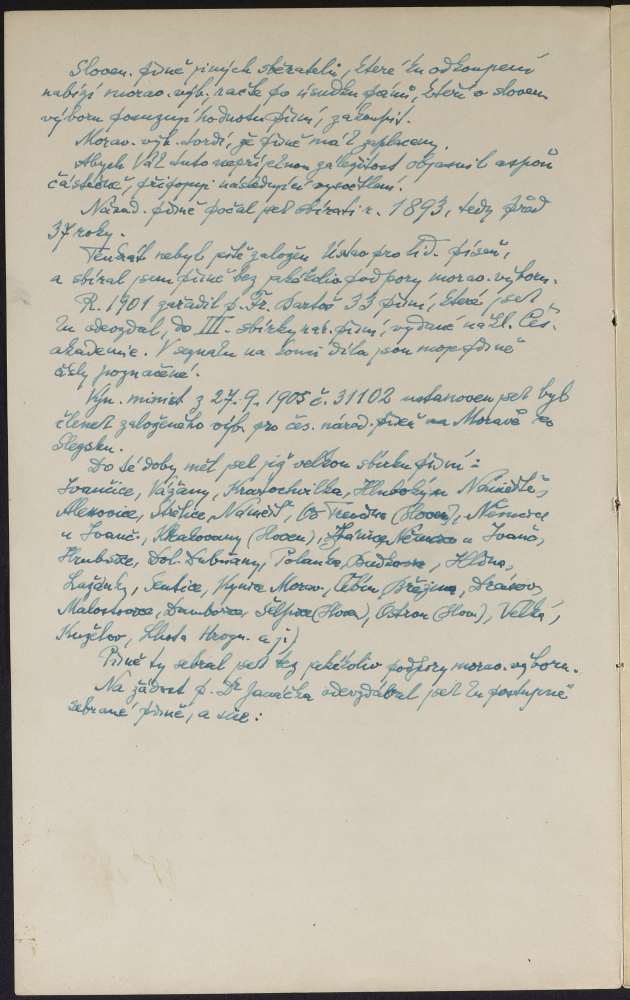 Sloven. písně jiných sběratelů, které ku odkoupení
nabízí morav. výb. račte po úsudku pánů, kteří v sloven.
výboru posuzují hodnotu písní, zakoupit.
Morav. výb. tvrdí, že písně má zaplaceny.
Abych Vám tuto nepříjemnou záležitost objasnil aspoň
částečně, připojuji následující vysvětlení.
Národ. písně počal jsem sbírati r. 1893, tedy před
37 roky.
Tenkrát nebyl ještě založen Ústav pro lid. píseň,
a sbíral jsem písně bez jakékoliv podpory morav. výboru.
R. 1901 zařadil p. Fr. Bartoš 33 písní, které jsem
mu odevzdal, do III. sbírky nár. písní, vydané nákl. Čes.
akademie. V seznamu na konci díla jsou moje písně
čísly poznačené.
Vyn. minist. z 27. 9. 1905 č. 31102 ustanoven jsem byl
členem založeného výb. pro čes. národ. píseň na Moravě a
Slezsku.
Do té doby měl jsem již velkou sbírku písní:
Ivančice, Vážany, Kratochvilka, Hluboký u Náměště,
Alexovice, Střelice, Náměšť, (Sloven.), Němčice
u Ivanč., (Sloven.), u Ivanč.,
Hrubšice, Dol. Dubňany, Polanka, Budkovice, Hlína,
Lažánky, Tentice, Kynice Morav., Čebín, Březina, Drásov,
Malostovice, Dambořice, (Slov.), Ostrov (Slov.), Velká,
Kuželov, Lhota Hrozn. a j.)
Písně ty sebral jsem bez jakékoliv podpory morav. výboru.
Na žádost p. Dr Janáčka odevzdával jsem mu postupně
sebrané písně, a sice: